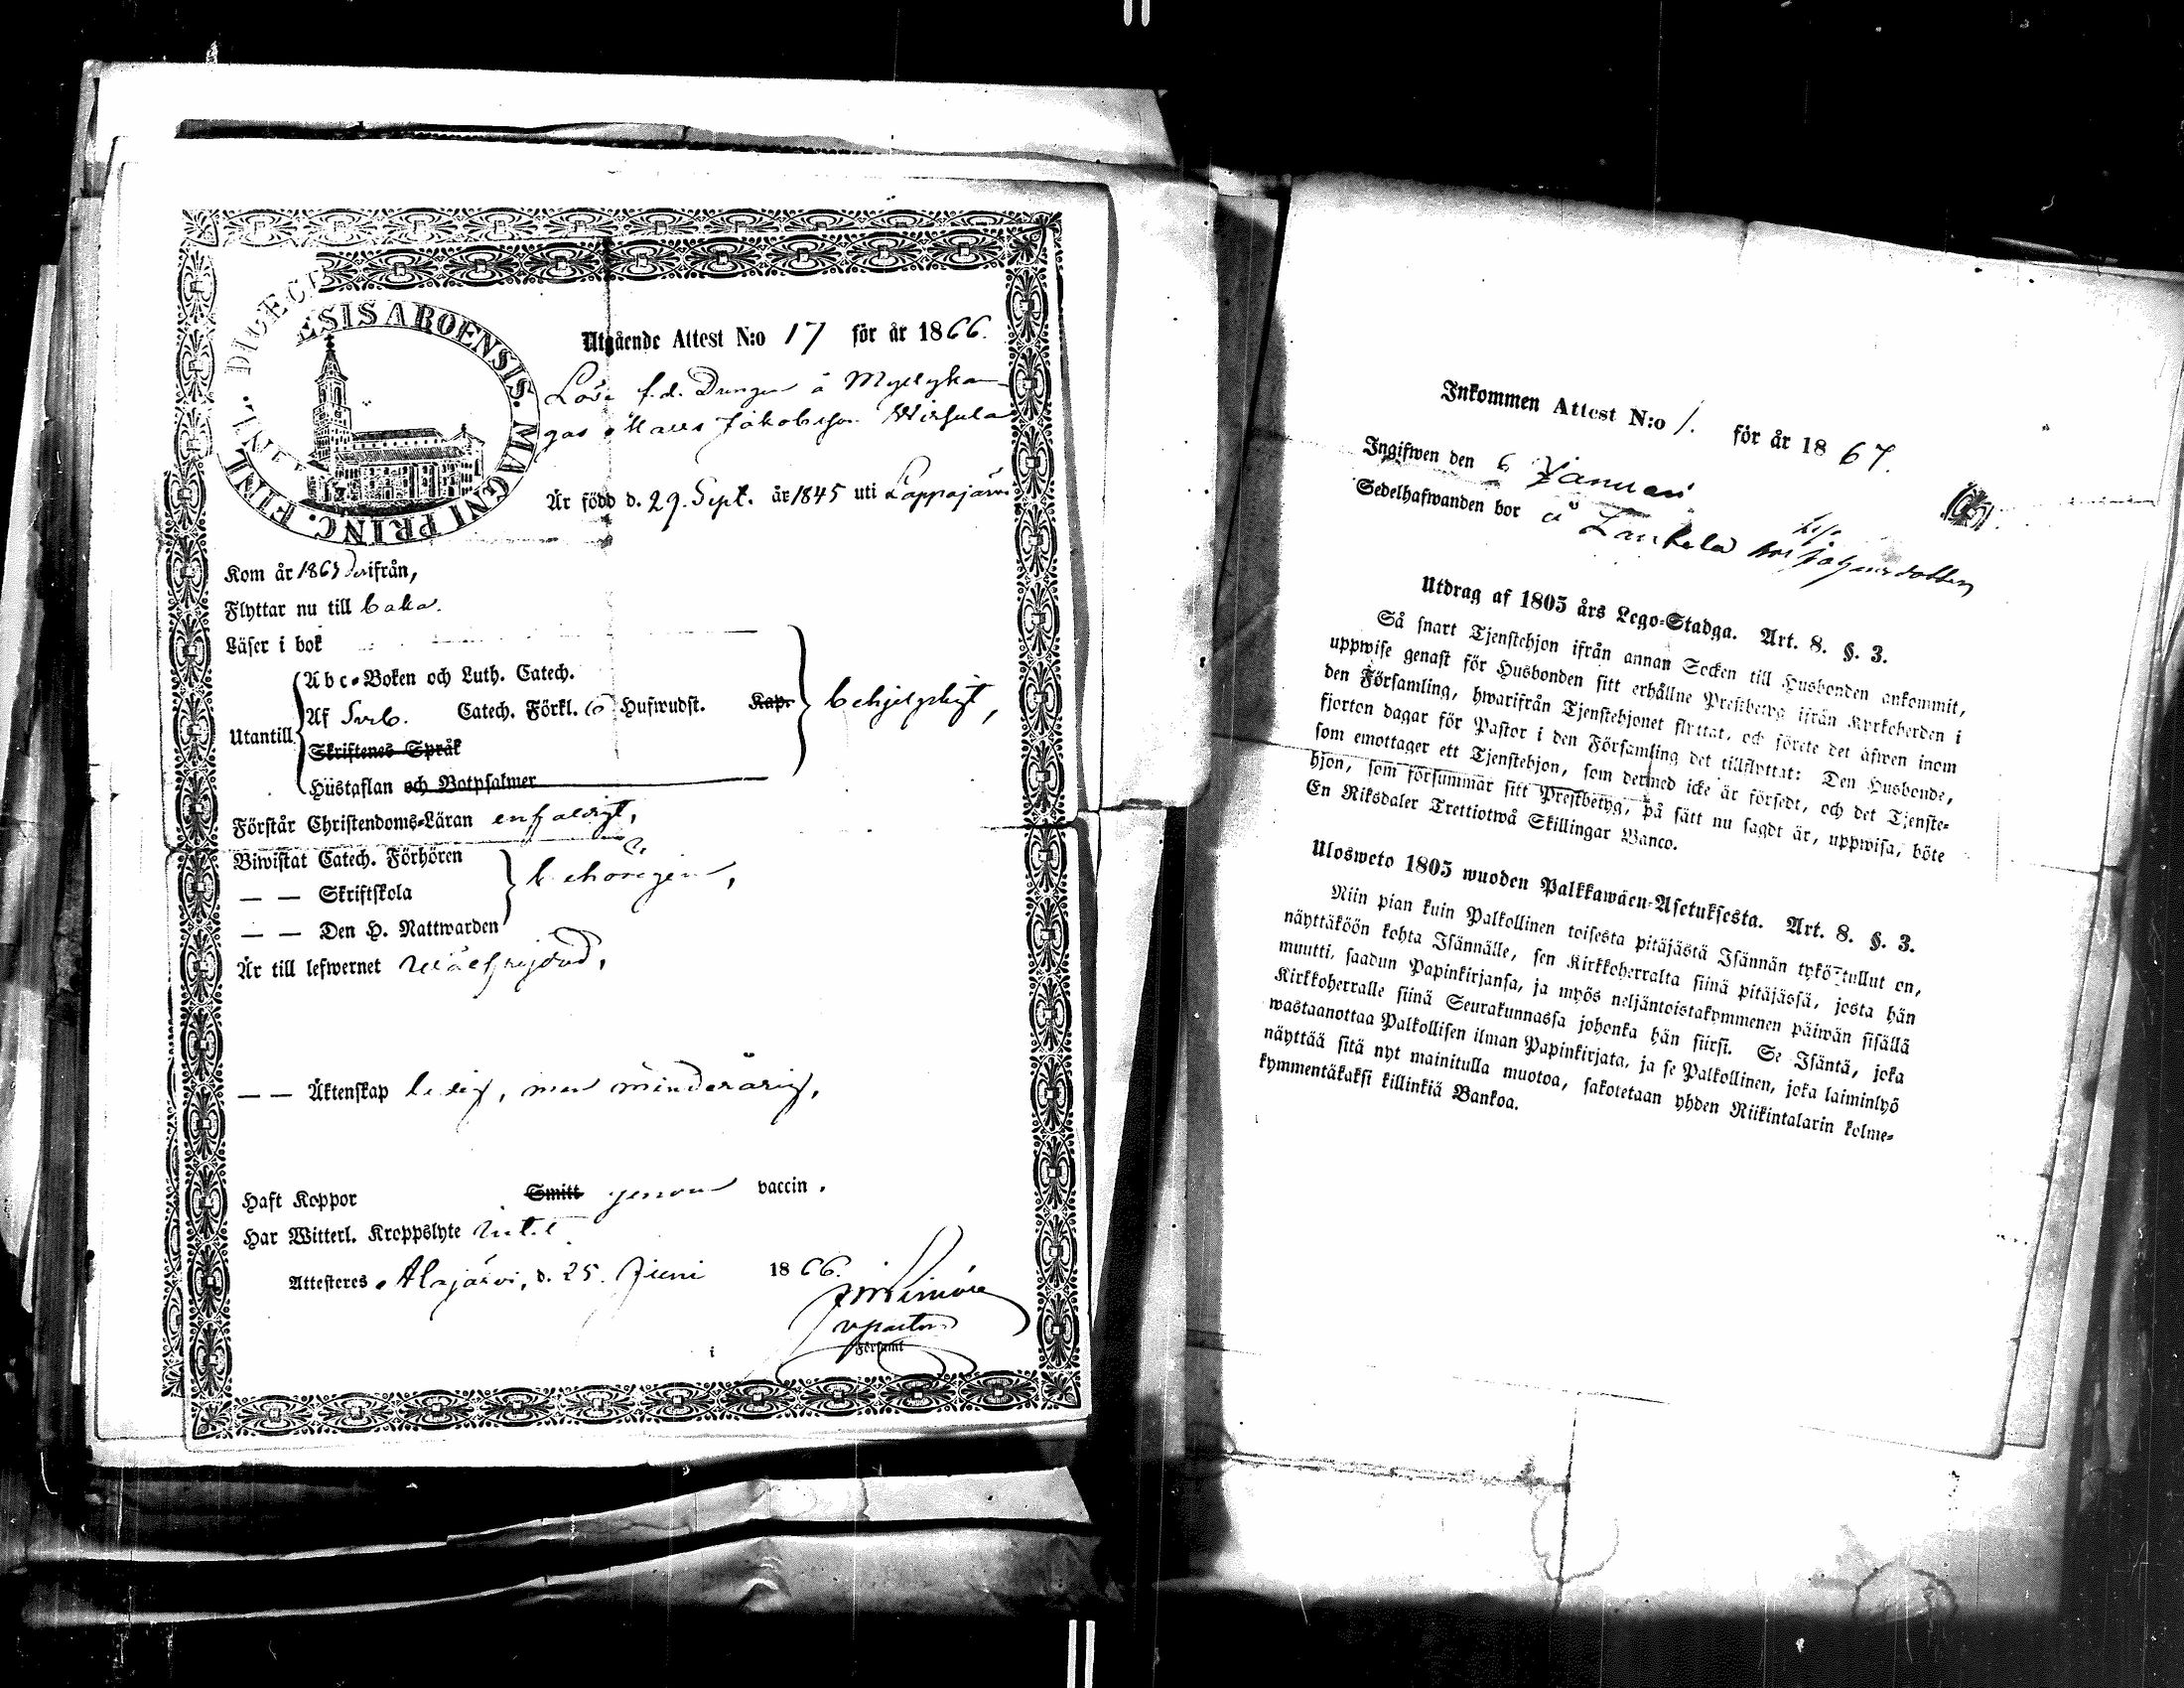 DIOECESIS ABOENSIS. MAGNI PRINC. FINL.
Utgående Attest N:o 17 för år 1866.
Löse f.d. Drengen å Myllykan-
gas Matts Jakobsson Wirkula
Är född d. 29. Sept. år 1845 uti Lappajärvi
Kom år 1865 derifrån,
Flyttar nu till baka.
Läser i bok
Abc-Boken och Luth. Catech.
Af Sveb. Catech. Förkl. 6 Hufwudst. Kap.
Utantill
behjelpligt,
Skriftenes Språk
Hustaflan och Botpsalmer
Förstår Christendoms-Läran enfaldigt,
Biwistat Catech. Förhören
— — Skriftskola
behörigen,
— — Den H. Nattwarden
Är till lefwernet wälfrejdad,
— — Äktenskap ledig, men minderårig,
Haft Koppor Smitt genom vaccin.
Har Witterl. Kroppslyte intet
Attesteres Alajärvi, d. 25. Juni 1866.
v pastor
i Församl
Inkommen Attest N:o 1. för år 1867.
Ingifwen den 6 Januari
Sedelhafwanden bor å Lankela hos Jakobsdotter
Utdrag af 1805 års Lego-Stadga. Art. 8. §. 3.
Så snart Tjenstehjon ifrån annan Socken till Husbonden ankommit,
uppwise genast för Husbonden sitt erhållne Prestbetyg ifrån Kyrkoherden i
den Församling, hwarifrån Tjenstehjonet flyttat, och förete det äfwen inom
fjorton dagar för Pastor i den Församling det tillflyttat: Den Husbonde,
som emottager ett Tjenstehjon, som dermed icke är försedt, och det Tjenste-
hjon, som försummar sitt Prestbetyg, på sätt nu sagdt är, uppwisa, böte
En Riksdaler Trettiotwå Skillingar Banco.
Ulosweto 1805 wuoden Palkkawäen-Asetuksesta. Art. 8. §. 3.
Niin pian kuin Palkollinen toisesta pitäjästä Isännän tykö tullut on,
näyttäköön kohta Isännälle, sen Kirkkoherralta siinä pitäjässä, josta hän
muutti, saadun Papinkirjansa, ja myös neljäntoistakymmenen päiwän sisällä
Kirkkoherralle siinä Seurakunnassa johonka hän siirsi. Se Isäntä, joka
wastaanottaa Palkollisen ilman Papinkirjata, ja se Palkollinen, joka laiminlyö
näyttää sitä nyt mainitulla muotoa, sakotetaan yhden Riikintalarin kolme-
kymmentäkaksi killinkiä Bankoa.